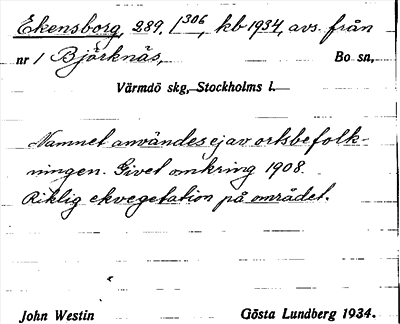 Ekensborg, 289, 1306, kb 1934, avs. från
nr 1 Björknäs, Bo sn,
Värmdö skg, Stockholms l.
Namnet användes ej av ortsbefolk-
ningen. Givet omkring 1908.
Riklig ekvegetation på området.
John Westin Gösta Lundberg 1934.